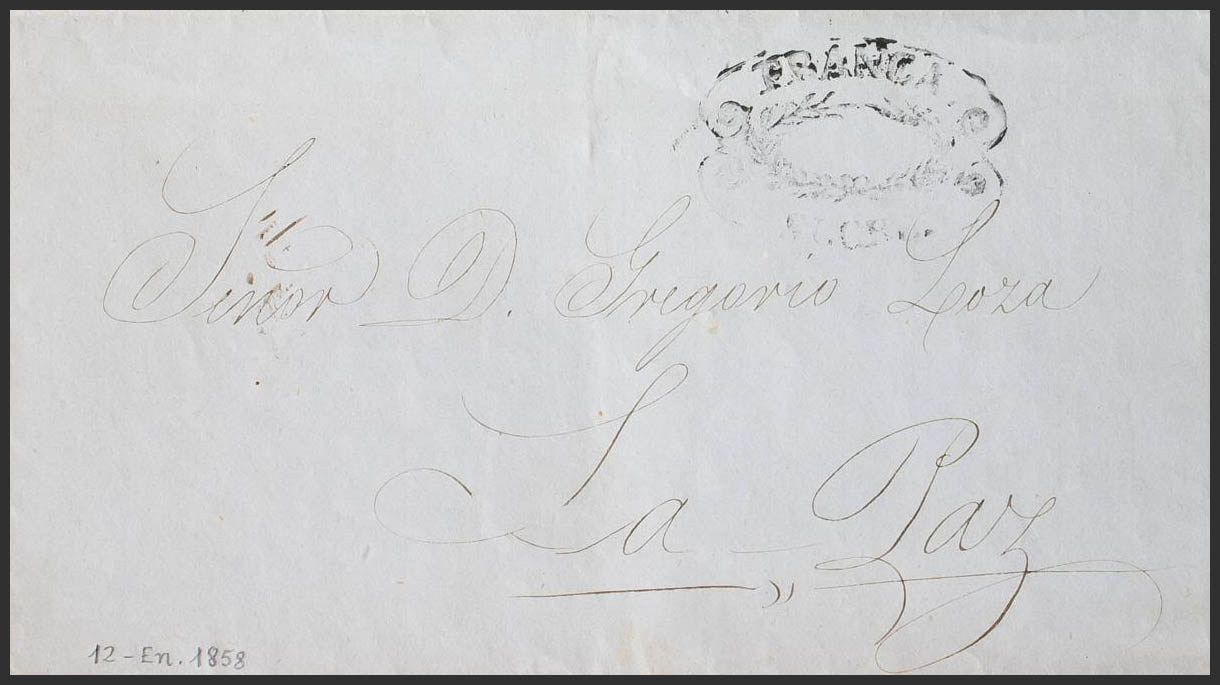 FRANCA
Señor D. Gregorio Loza
La Paz
12-En. 1858